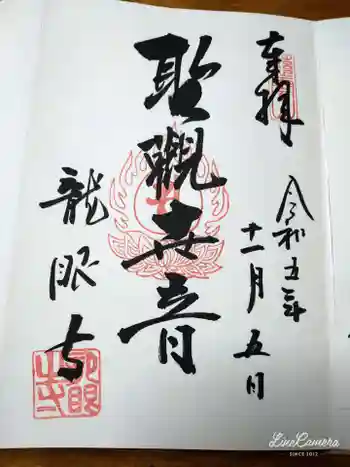 奉拝
令和五年
十一月五日
聖観世音
龍眼寺
LINE Camera
SINCE 2012